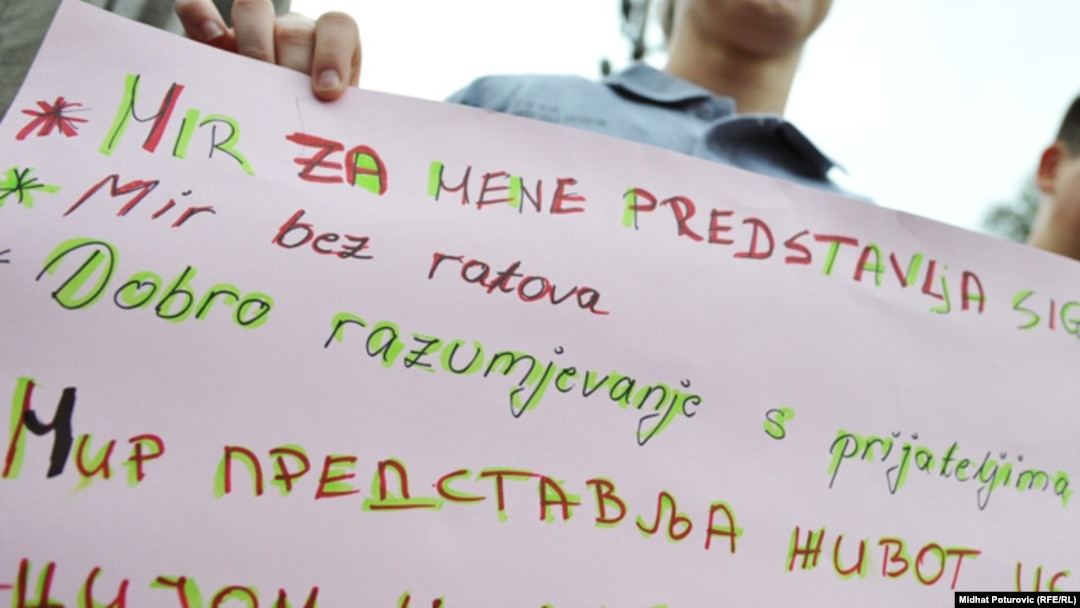 * MIR ZA MENE PREDSTAVLjA SIG
* Mir bez ratova
Dobro razumjevanje s prijateljima
Мир ПРЕДСТАВЉА ЖИВОТ
Midhat Poturovic (RFE/RL)